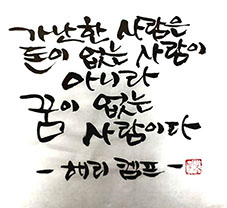 가난한 사람은
돈이 없는 사람이
아니라
꿈이 없는
사람이다
- 해리 켐프 -